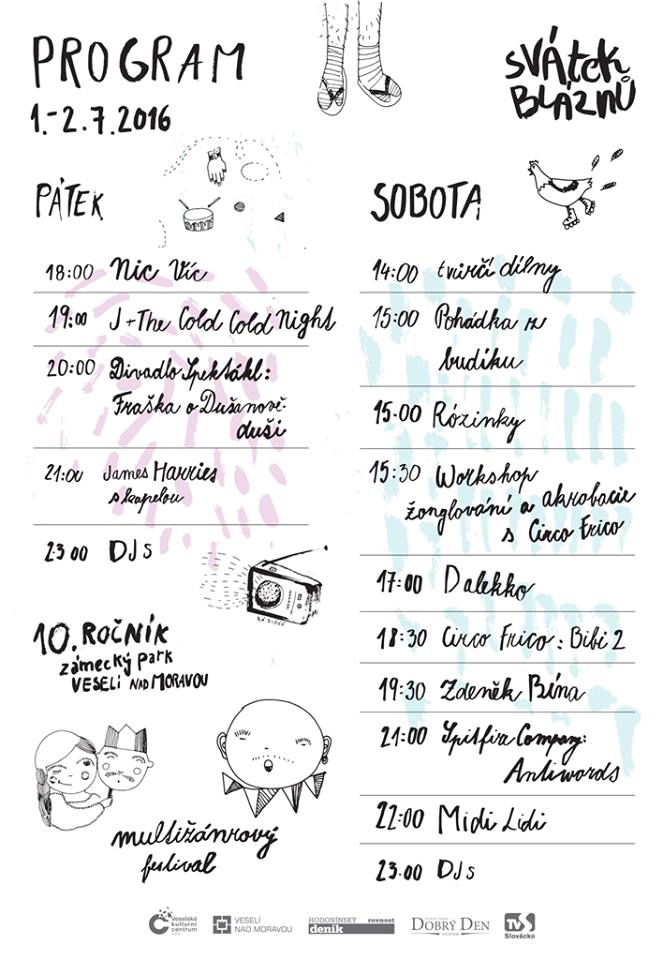 PROGRAM
1.-2.7.2016
SVÁtek
BLÁZNŮ
PÁTEK
18:00 Nic Víc
19:00 J+The Cold Cold Night
20:00 Divadlo Spektákl:
Fraška o Dušanově
duši
21:00 James Harries
s kapelou
23 00 DJs
10. ROČNÍK
zámecký park
VESELÍ NAD MORAVOU
multižánrový
festival
SOBOTA
14:00 tvůrčí dílny
15:00 Pohádka z
budíku
15:00 Rózinky
15:30 Workshop
žonglování a akrobacie
s Circo Frico
17:00 Dalekko
18:30 Circo Frico: Bibi 2
19:30 Zdeněk Bína
21:00 Spitfire Company:
Antiwords
22:00 Midi Lidi
23:00 DJs
Veselské
kulturní
centrum
VESELÍ
NAD MORAVOU
HODONÍNSKÝ rovnost
deník
DOBRÝ DEN
TVS
Slovácko